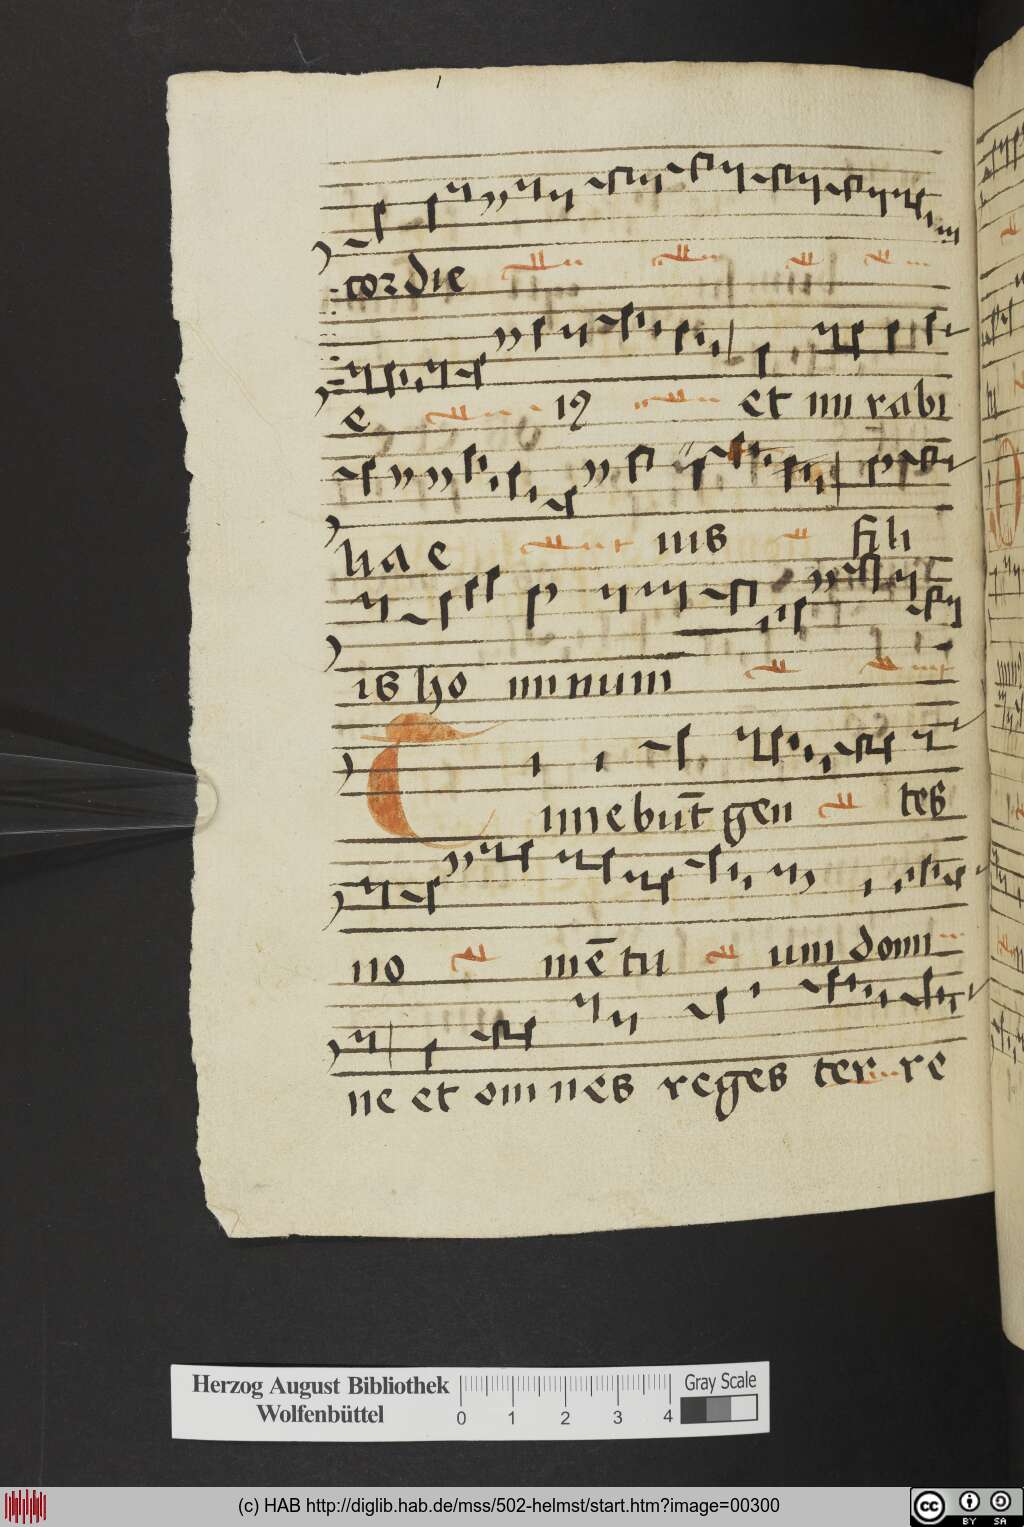 cordie
e i9 et mirabi
liae eius fili
is hominum
Timebūt gen tes
no mē tu um domi
ne et omnes reges ter re
Herzog August Bibliothek
Wolfenbüttel
0 1 2 3 4
Gray Scale
(c) HAB http://diglib.hab.de/mss/502-helmst/start.htm?image=00300
cc BY SA